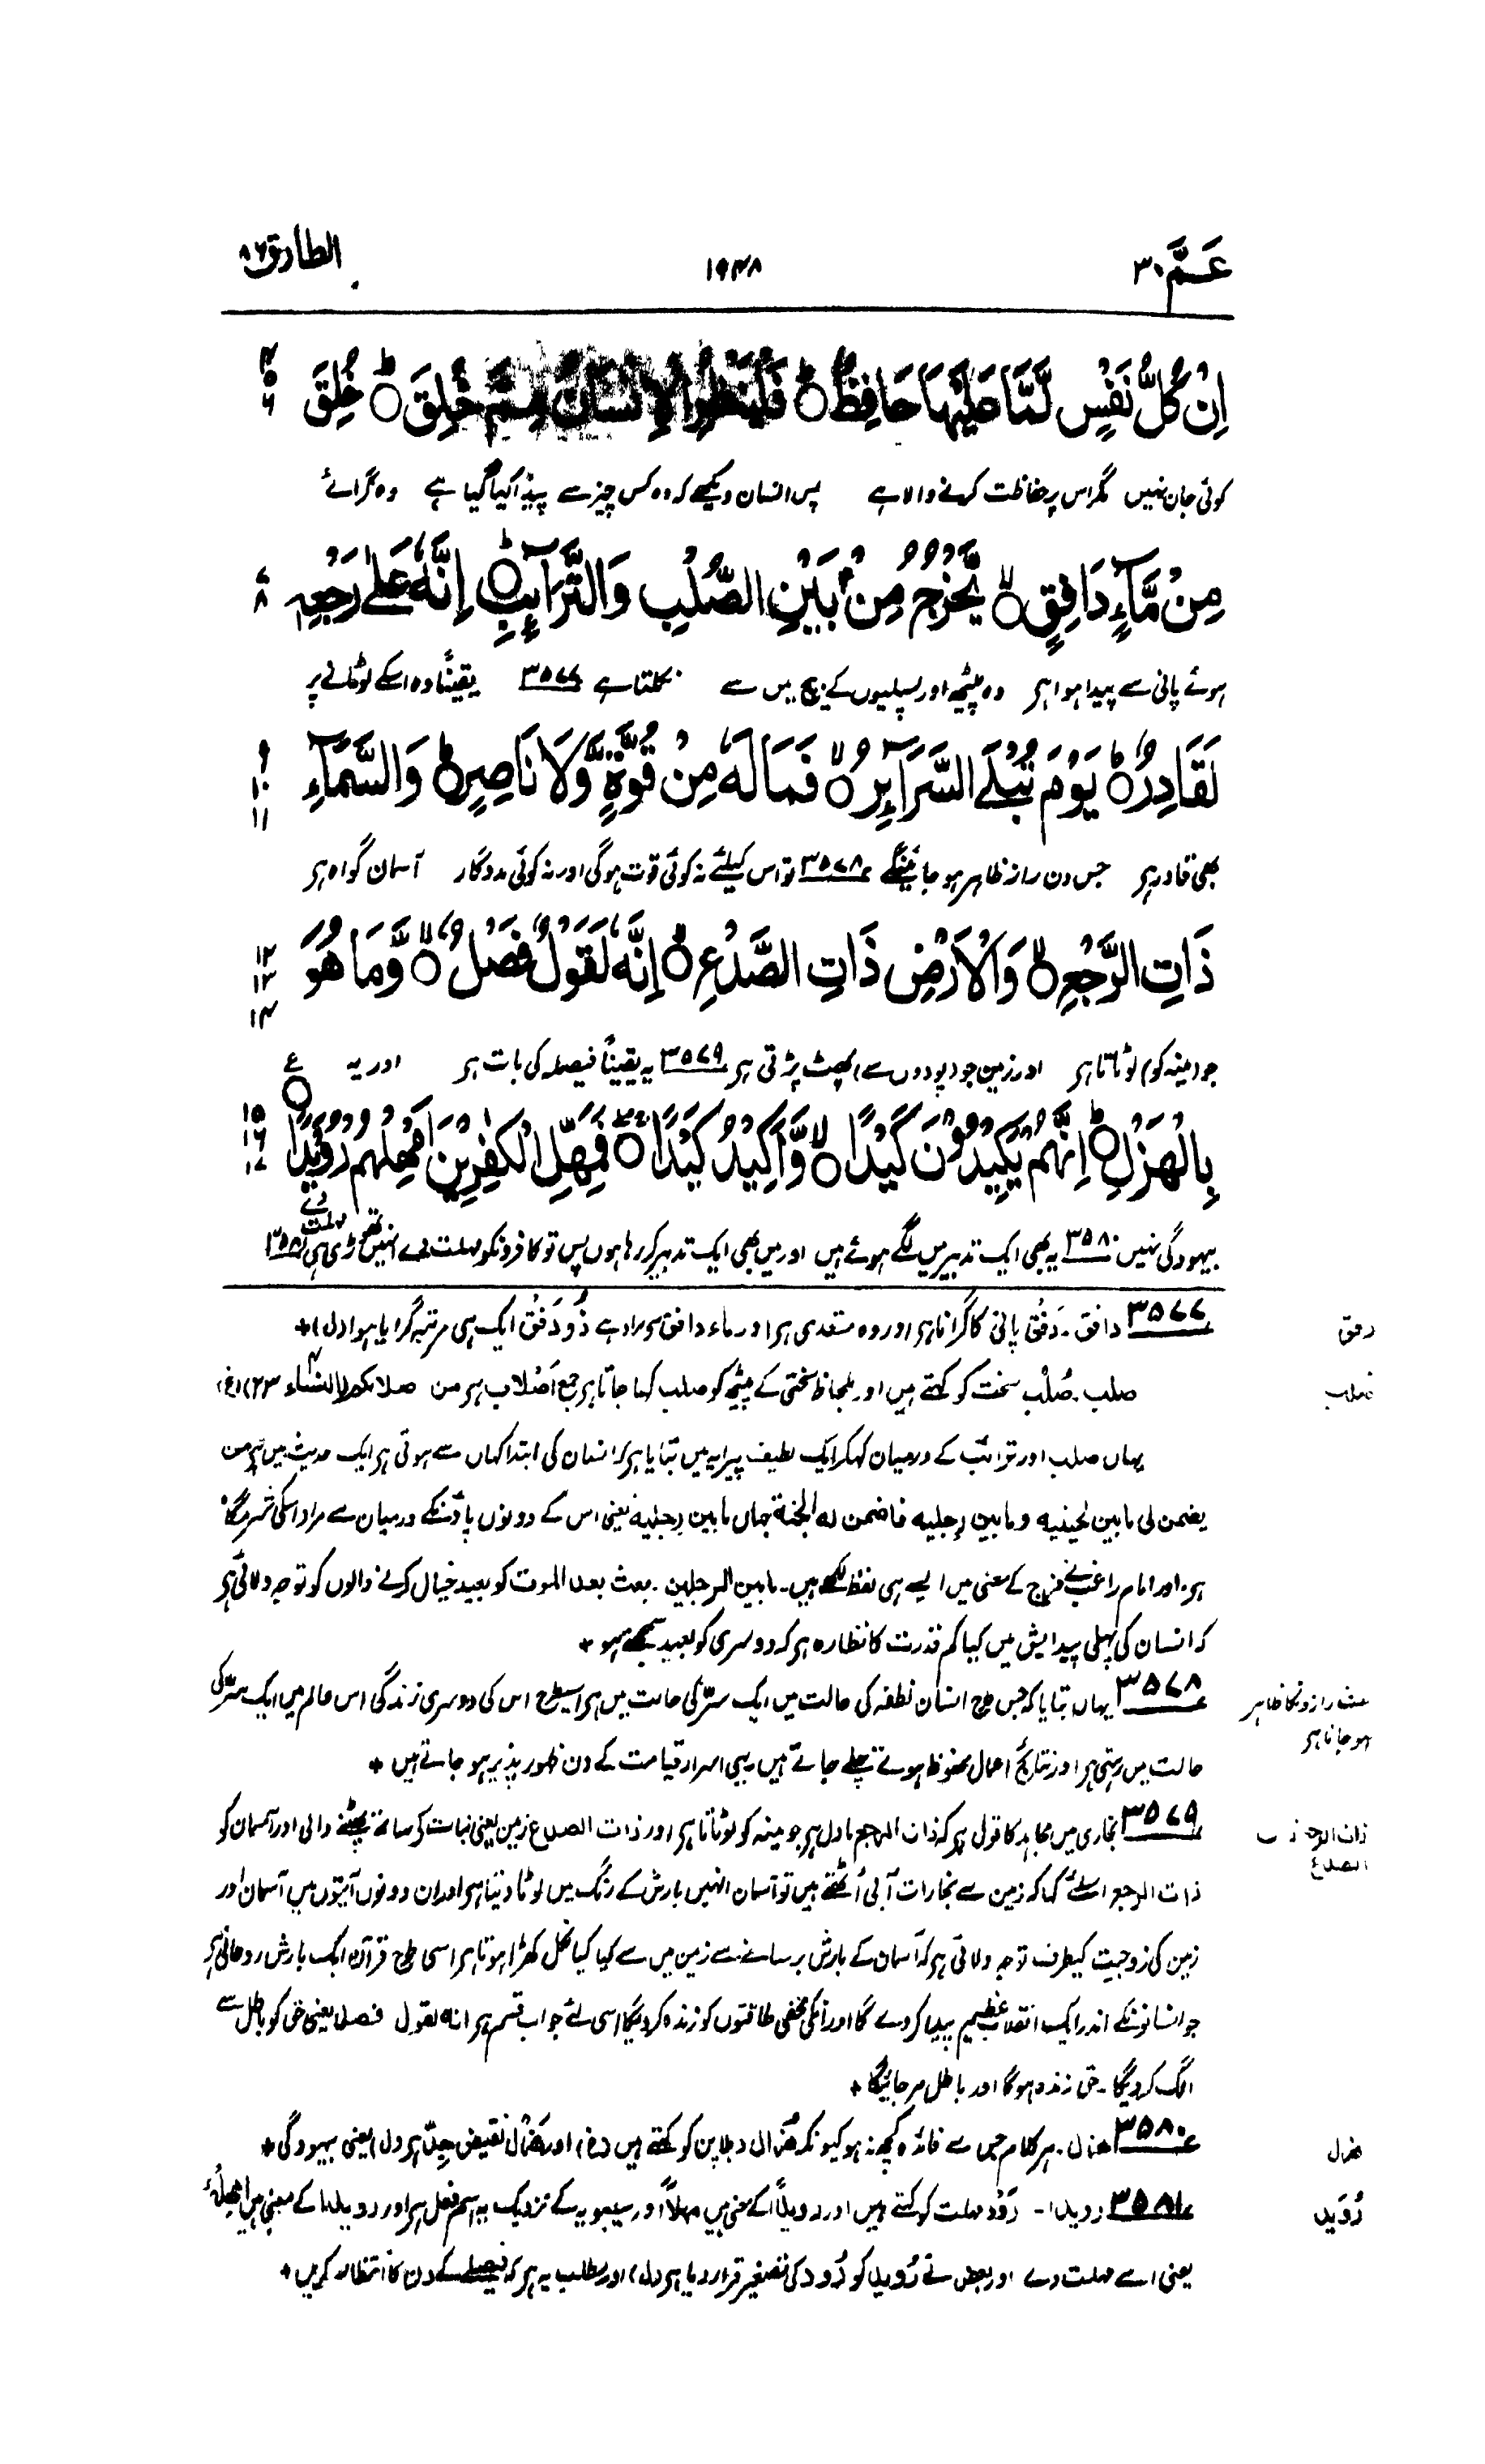 عَمَّ ۳۰
۱۹۴۸
الطارق ۸۶
اِنْ كُلُّ نَفْسٍ لَّمَّا عَلَيْهَا حَافِظٌ ۞ فَلْيَنْظُرِ الْاِنْسَانُ مِمَّ خُلِقَ ۞ خُلِقَ
۴ ۵ ۶
کوئی جان نہیں مگر اس پر حفاظت کرنے والا ہے پس انسان دیکھے کہ وہ کس چیز سے پیدا کیا گیا ہے وہ گرائے
مِنْ مَّآءٍ دَافِقٍ ۞ يَّخْرُجُ مِنْۢ بَيْنِ الصُّلْبِ وَالتَّرَآئِبِ ۞ اِنَّهٗ عَلٰى رَجْعِهٖ
۷ ۸
ہوئے پانی سے پیدا ہوا ہر وہ پیٹھ اور پسلیوں کے بیچ میں سے نکلتا ہے ۳۵۷۷ یقیناً وہ اسکے لوٹانے پر
لَقَادِرٌ ۞ يَوْمَ تُبْلَى السَّرَآئِرُ ۞ فَمَا لَهٗ مِنْ قُوَّةٍ وَّلَا نَاصِرٍ ۞ وَالسَّمَآءِ
۹ ۱۰ ۱۱
بھی قادر ہر جس دن راز ظاہر ہو جائینگے ۳۵۷۸ تو اس کیلئے نہ کوئی قوت ہوگی اور نہ کوئی مددگار آسمان گواہ ہر
ذَاتِ الرَّجْعِ ۞ وَالْاَرْضِ ذَاتِ الصَّدْعِ ۞ اِنَّهٗ لَقَوْلٌ فَصْلٌ ۞ وَّمَا هُوَ
۱۲ ۱۳ ۱۴
جو (مینہ کو) لوٹاتا ہر اور زمین جو (پودوں سے) پھٹ پڑتی ہر ۳۵۷۹ یہ یقیناً فیصلہ کی بات ہر اور یہ
بِالْهَزْلِ ۞ اِنَّهُمْ يَكِيْدُوْنَ كَيْدًا ۞ وَّاَكِيْدُ كَيْدًا ۞ فَمَهِّلِ الْكٰفِرِيْنَ اَمْهِلْهُمْ رُوَيْدًا ۞ ع
۱۵ ۱۶ ۱۷
بیہودگی نہیں ۳۵۸۰ یہ بھی ایک تدبیر میں لگے ہوئے ہیں اور میں بھی ایک تدبیر کر رہا ہوں پس تو کافرونکو مہلت دے انہیں تھوڑی سی مہلت دے ۳۵۸۱
۳۵۷۷ دافق۔ دَفْق پانی کا گرانا ہر اور وہ متعدی ہر اور ماء دافق سے مراد ہے ذُو دَفْق ایک ہی مرتبہ گرایا ہوا (ل) +
دفق
صلب۔ صُلْب سخت کو کہتے ہیں اور بلحاظ سختی کے پیٹھ کو صلب کہا جاتا ہر جمع اَصْلاب ہر من صلابکم (النساء ۲۳) (غ)
صلب
یہاں صلب اور ترائب کے درمیان کہکر ایک لطیف پیرایہ میں بتایا ہر کہ انسان کی ابتدا کہاں سے ہوتی ہر ایک حدیث میں ہر من
یضمن لی مابین لحییہ ومابین رجلیہ فاضمن لہ الجنۃ جہاں مابین رجلیہ یعنی اس کے دونوں پاؤنکے درمیان سے مراد اسکی شرمگاہ
ہر۔ اور امام راغب نے فرج کے معنی میں ایسے ہی لفظ لکھے ہیں۔ مابین الرجلین۔ بعث بعد الموت کو بعید خیال کرنے والوں کو توجہ دلائی ہر
کہ انسان کی پہلی پیدایش میں کیا کم قدرت کا نظارہ ہر کہ دوسری کو بعید سمجھتے ہو +
۳۵۷۸ یہاں بتایا کہ جس طرح انسان نطفہ کی حالت میں ایک سِرّ کی حالت میں ہر اسیطرح اس کی دوسری زندگی اس عالم میں ایک سِرّ کی
رازونکا ظاہر
ہو جانا ہر
حالت میں رہتی ہر اور نتائج اعمال محفوظ ہوتے چلے جاتے ہیں یہی اسرار قیامت کے دن ظہور پذیر ہو جاتے ہیں +
۳۵۷۹ بخاری میں مجاہد کا قول ہر کہ ذات الرجع بادل ہر جو مینہ کو لوٹاتا ہر اور ذات الصدع زمین یعنی نبات کے ساتھ پھٹنے والی اور آسمان کو
ذات الرجع
الصدع
ذات الرجع اسلئے کہا کہ زمین سے بخارات آبی اُٹھتے ہیں تو آسمان انہیں بارش کے رنگ میں لوٹا دیتا ہر اور ان دونوں آیتوں میں آسمان اور
زمین کی زوجیت کیطرف توجہ دلائی ہر کہ آسمان کے بارش برسانے سے زمین میں سے کیا کیا نکل کھڑا ہوتا ہر اسی طرح قرآن ایک بارش روحانی ہر
جو انسانونکے اندر ایک انقلاب عظیم پیدا کر دے گا اور انکی مخفی طاقتوں کو زندہ کر دیگا اسی لئے جواب قسم ہر انہ لقول فصل یعنی حق کو باطل سے
الگ کر دیگا۔ حق زندہ ہوگا اور باطل مر جائیگا +
۳۵۸۰ ھزل۔ ہر کلام جس سے فائدہ کچھ نہ ہو کیونکہ ھُزال دبلاپن کو کہتے ہیں (غ) اور ھَزْل نقیض جِدّ ہر (ل) یعنی بیہودگی +
ھزل
۳۵۸۱ رویدا۔ رَوْد مہلت کو کہتے ہیں اور رویداً کے معنی ہیں مہلاً اور سیبویہ کے نزدیک یہ اسم فعل ہر اور رویدا کے معنی ہیں اَمْهِلْهُ
رُوَید
یعنی اسے مہلت دے اور بعض نے رُوید کو رُود کی تصغیر قرار دیا ہر (ل) اور مطلب یہ ہر کہ فیصلے کے دن کا انتظار کریں +